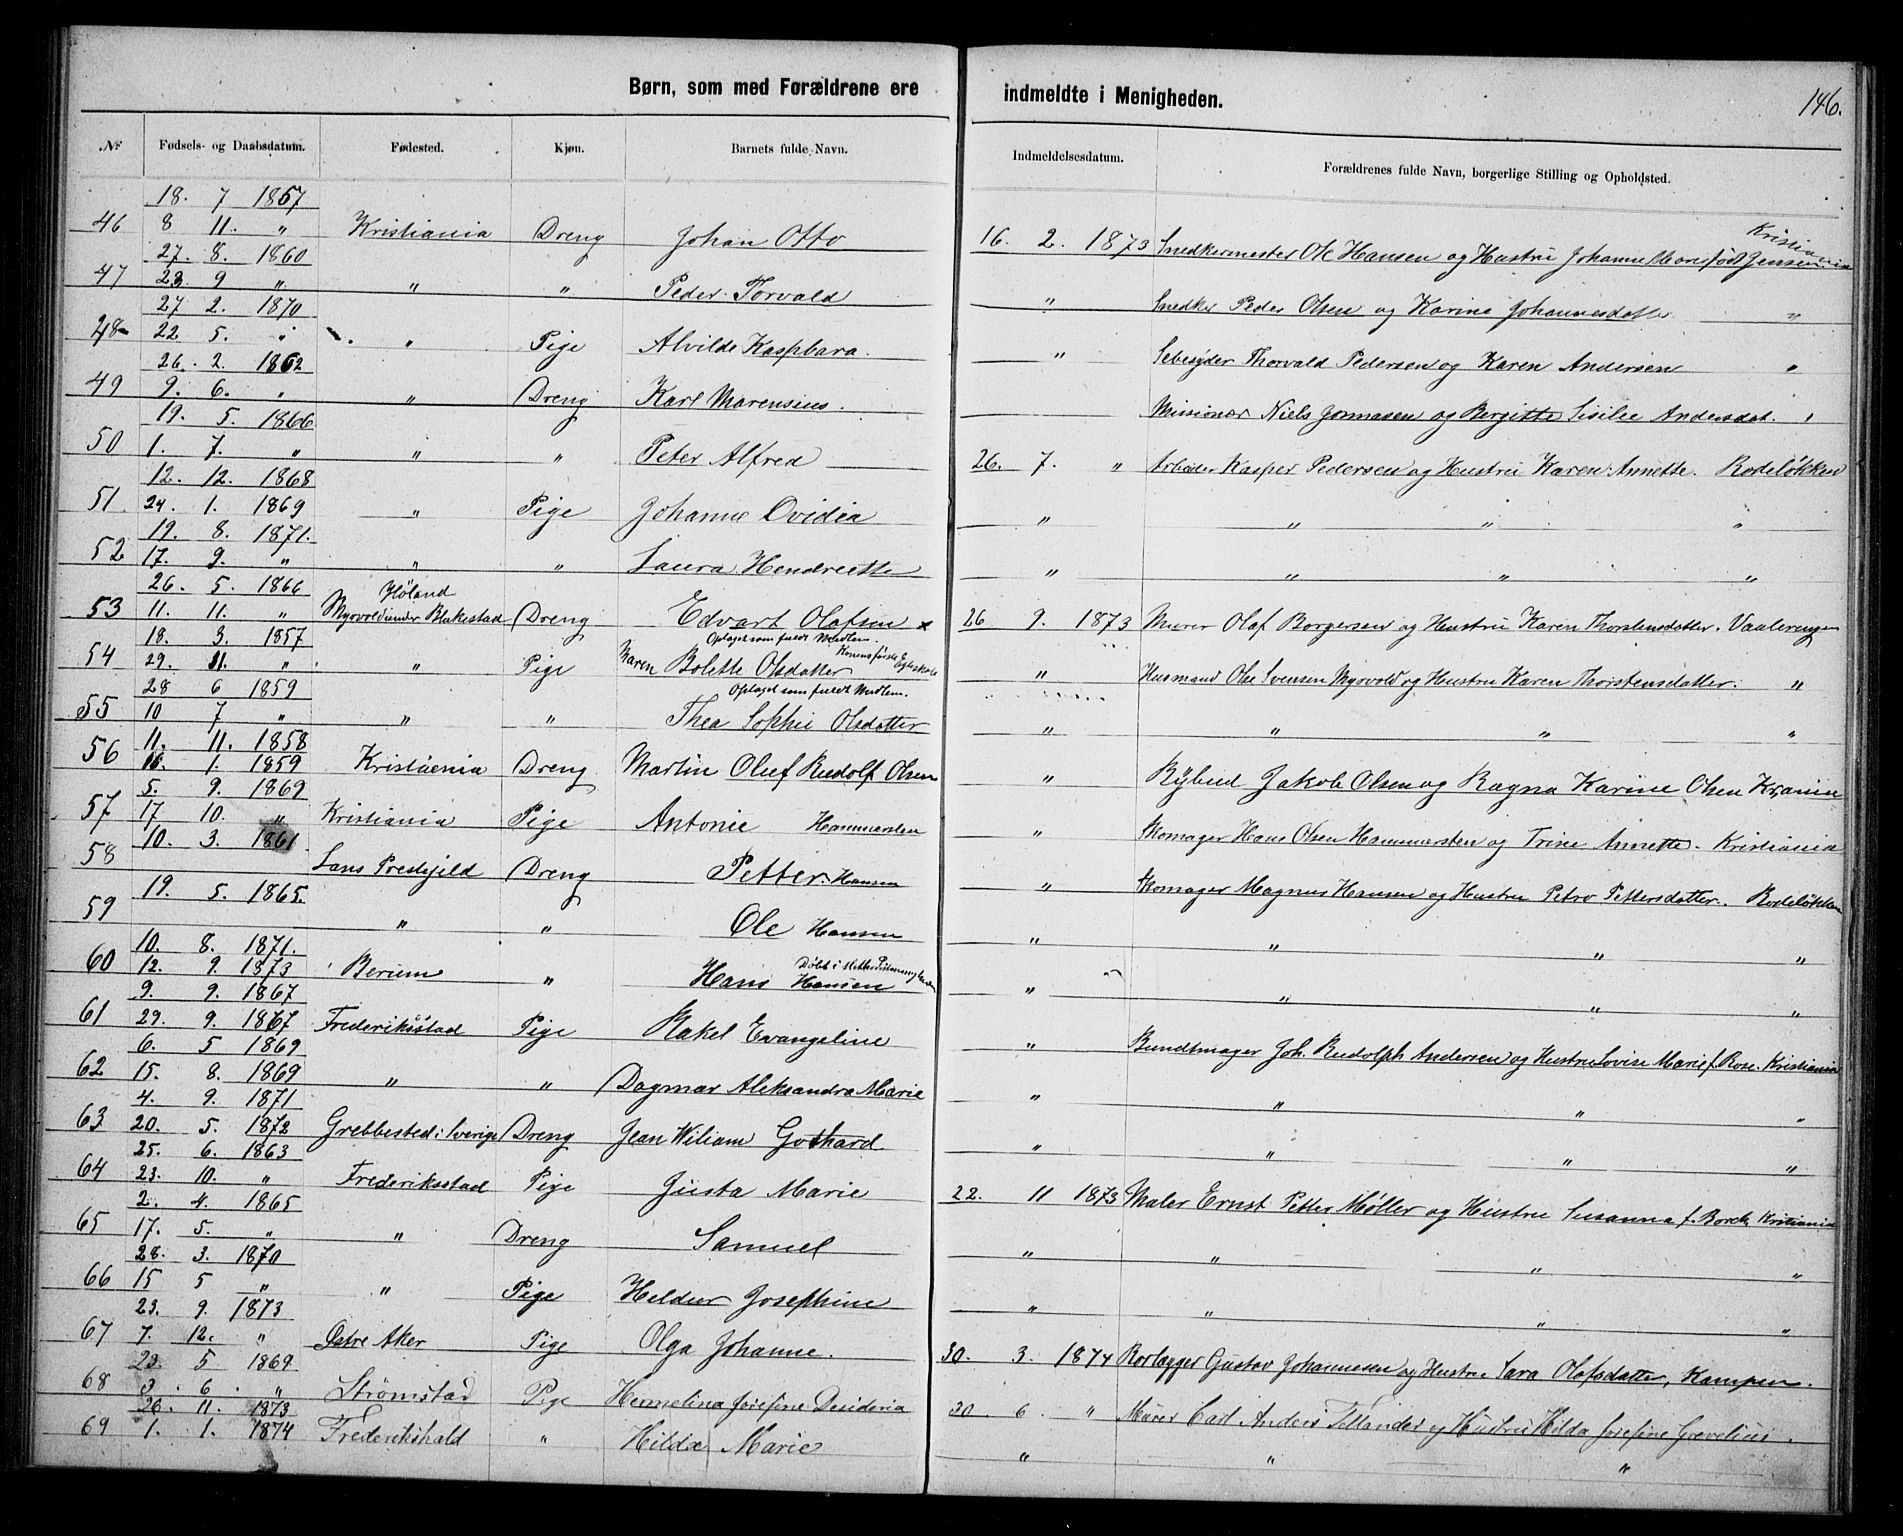 Børn, som med Forældrene ere indmeldte i Menigheden. 146.
№ Fødsels- og Daabsdatum. Fødested. Kjøn. Barnets fulde Navn. Indmeldelsesdatum. Forældrenes fulde Navn, borgerlige Stilling og Opholdsted.
18. 7 1867
46 8 11. " Kristiania Dreng Johan Otto 16. 2. 1873 Snedkermester Ole Hansen og Hustru Johanne Marie født Jensen Kristiania
27. 8. 1860
47 23. 9 " " " Peder Torvald " Snedker Peder Olsen og Karine Johannesdatter "
27 2. 1870
48 22 5. " " Pige Alvilde Kaspbara. " Sebesyder Thorvald Pedersen og Karen Andersen "
26. 2. 1862
49 9. 6. " " Dreng Karl Marensius. Missionær Niels og Bergitte Sisilie Andersdat. "
19. 5. 1866
50 1. 7. " " " Peter Alfred 26. 7. " Arbeider Kasper Pedersen og Hustru Karen Annette. Rodeløkken
12. 12. 1868
51. 24. 1. 1869 " Pige Johanne Ovidia " " " "
19. 8. 1871.
52 17. 9. " " " Laura Hendriette " " " "
26. 5. 1866 Høland
53 11. 11. " Myrvold under Blakestad Dreng Edvart Olafsen x 26 9. 1873 Murer Olaf Borgersen og Hustru Karen Thorstensdatter. Vaalerengen
18. 3. 1857 Optaget som fuldt Medlem.
54 29. 11. " " Pige Maren Bolette Olsdatter Konens første Egteskab " Husmand Ole Svensen Myrvold og Hustru Karen Thorstensdatter. "
28 6 1859 Optaget som fuldt Medlem.
55 10 7 " " " Thea Sophie Olsdatter " " " "
11. 11. 1858
56 16. 1. 1859 Kristiania Dreng Martin Oluf Rudolf Olsen " Bybud Jakob Olsen og Ragna Karine Olsen Kr.ania
5. 9. 1869
57 17 10. " Kristiania Pige Antonie Hammersten " Skomager Hans Olsen Hammersten og Trine Annette. Kristiania
10. 3. 1861
58 Lans Prestejeld Dreng Petter. Hansen " Skomager Magnus Hansen og Hustru Petro Pettersdatter. Rodeløkken
19. 5. 1865.
59 " " Ole Hansen " " " "
10. 8. 1871.
60 12. 9. 1873 Berum " Hans Hansen Døbt i " " " "
9. 9. 1867
61 29. 9. 1867 Frederiksstad Pige Rakel Evangeline " Bundtmager Joh. Rudolph Andersen og Hustru Lovise Marie f. Rose. Kristiania
6. 5 1869
62 15. 8. 1869 " " Dagmar Aleksandra Marie " " " "
4. 9. 1871
63 20. 5. 1872 Grebbested i Sverige Dreng Jean Wiliam Gothard " " " "
25. 6. 1863
64 23. 10. " Frederiksstad Pige Gusta Marie 22. 11 1873 Maler Ernst Petter Møller og Hustru Susanna f. Borck Kristiania
2. 4. 1865
65 17. 5. " " Dreng Samuel " " " "
28. 3. 1870
66 15 5 " " Pige Heldur Josephine " " " "
23. 9. 1873
67 7. 12. " Østre Aker Pige Olga Johanne. 30. 3. 1874 Rorlægger Gustav Johannesen og Hustru Sara Olafsdatter, Kampen.
23. 5 1869.
68 3. 6. " Strømstad Pige Hermelina Josefine Desideria 30. 6 " Murer Carl Anders Tellander og Hustru Hilda Josefine Grevelius.
26. 11. 1873
69 1. 1. 1874 Frederikshald " Hilda Marie " " "